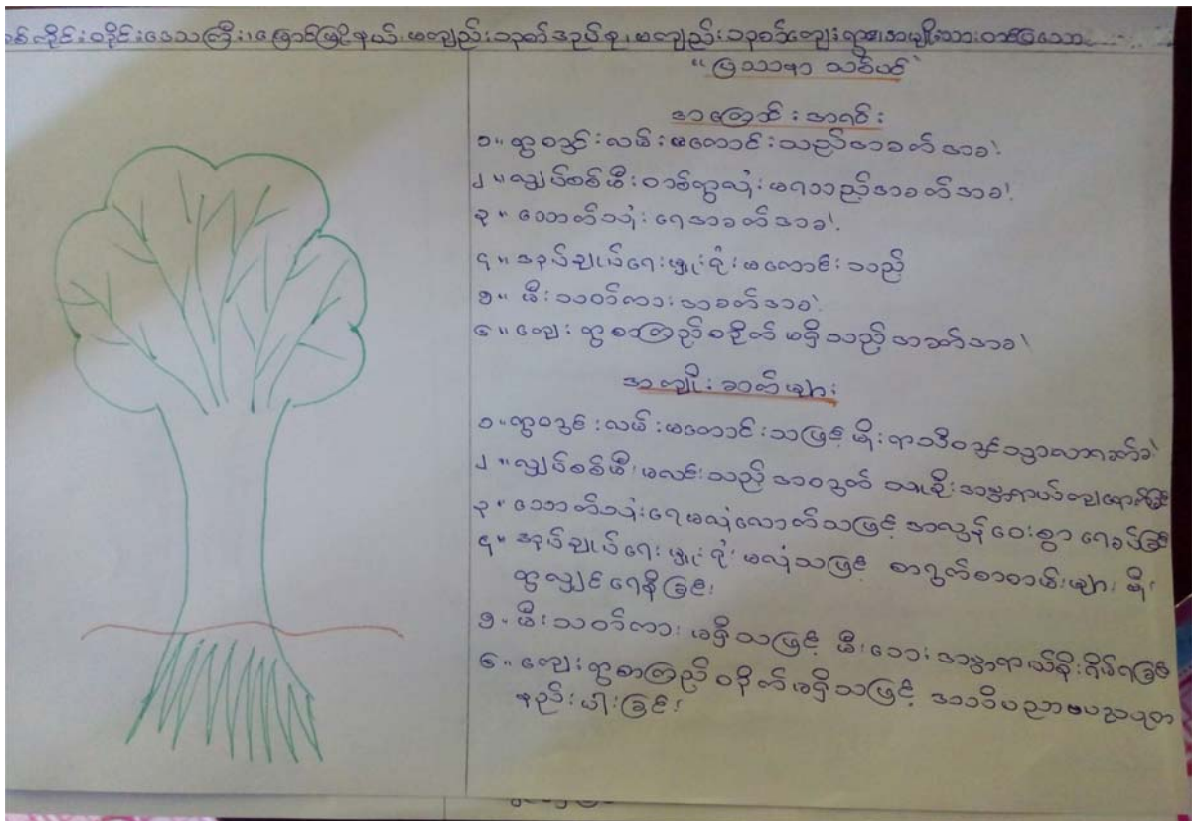 စစ်ကိုင်းတိုင်းဒေသကြီး၊ မြောင်မြို့နယ်၊ မကျည်းသုတ်အုပ်စု၊ မကျည်းသုတ်ကျေးရွာ၊
"ပြဿနာ သစ်ပင်"
အကြောင်းအရင်း
၁။ ရွာတွင်းလမ်းမကောင်းသည့်အခက်အခဲ
၂။ လျှပ်စစ်မီးတစ်ရွာလုံးမရသည့်အခက်အခဲ
၃။ သောက်သုံးရေအခက်အခဲ
၄။ အုပ်ချုပ်ရေးမှူးရုံးမကောင်းသည်
၅။ မီးသတ်ကားအခက်အခဲ
၆။ ကျေးရွာစာကြည့်တိုက်မရှိသည့်အခက်အခဲ
အကျိုးဆက်များ
၁။ ရွာတွင်းလမ်းမကောင်းသဖြင့် မိုးရာသီတွင်သွားလာရခက်ခဲ
၂။ လျှပ်စစ်မီးမလင်းသည့်အတွက် သူခိုးအန္တရာယ်ကျရောက်ခြင်း
၃။ သောက်သုံးရေမလုံလောက်သဖြင့် အလွန်ဝေးစွာ ရေခပ်ခြင်း
၄။ အုပ်ချုပ်ရေးမှူးရုံးမလုံသဖြင့် စာရွက်စာတမ်းများ မိုး
ရွာလျှင်ရေစိုခြင်း
၅။ မီးသတ်ကားမရှိသဖြင့် မီးဘေးအန္တရာယ်စိုးရိမ်ရခြင်း
၆။ ကျေးရွာစာကြည့်တိုက်မရှိသဖြင့် အသိပညာဗဟုသုတ
နည်းပါးခြင်း